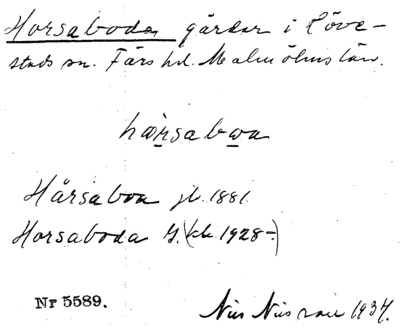 Horsaboda, gårdar i Löve-
stads sn. Färs hd. Malmöhus län.
hårsabωa
Hårsaboa jb. 1881.
Horsaboda G. (kb 1928-)
Nr 5589.
Nils Nilsson 1937.